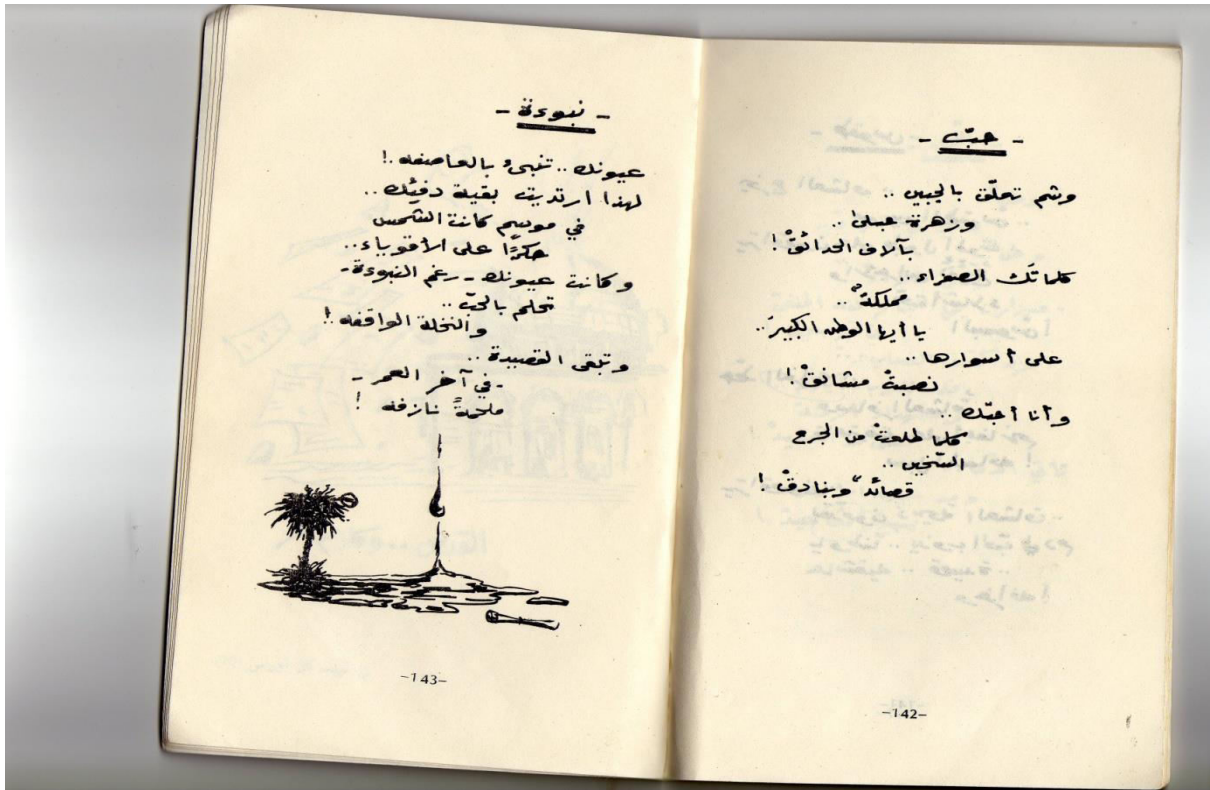 - حبّ -
وشم تحلّق بالجبين ..
وزهرة حبلى ..
بآلاف الحدائقْ !
كلماتك الصفراء ..
مملكةٌ ..
يا أيها الوطن الكبيرَ ..
على أسوارها ..
نصبتْ مشانقْ !
وأنا أحبّك ..
كلما طلعتْ من الجرح
السّخين ..
قصائدٌ وبنادقْ !
-142-
- نبوءة -
عيونك .. تنبىء بالعاصفه .!
لهذا ارتديت بقية دفئك ..
في موسم كانت الشّمس
حكرًا على الأقوياء ..
وكانت عيونك - رغم النبوءة -
تحلم بالحبّ ..
والنخلة الواقفه .!
وتبقى القصيدة ..
- في آخر العمر -
ملحمةً نازفه !
-143-